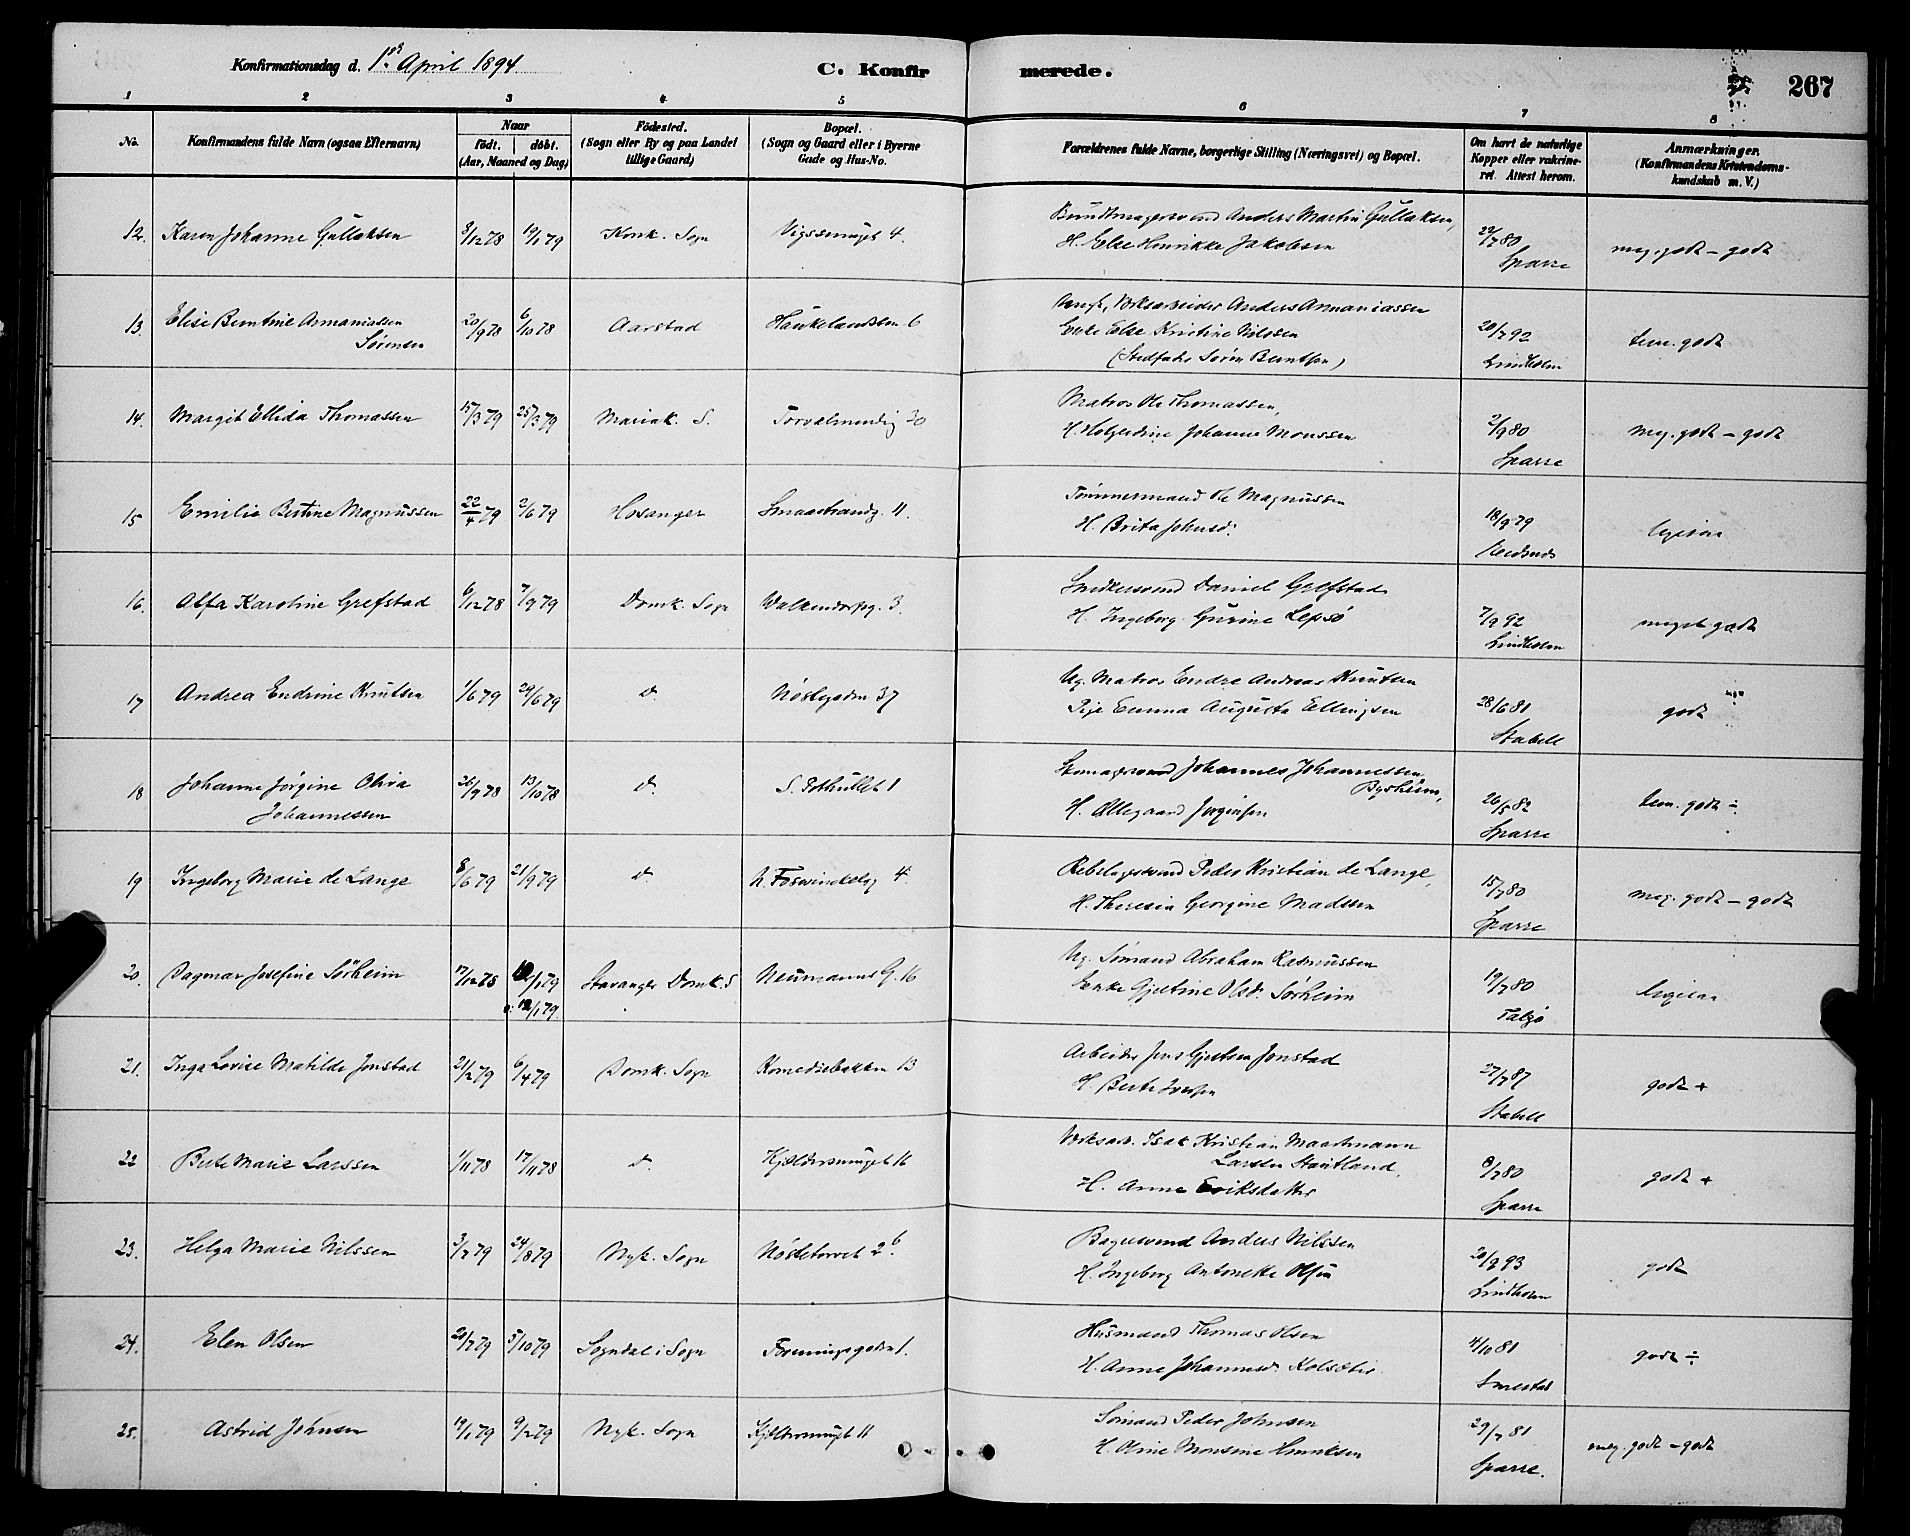 Konfirmationsdag d. 1ste April 1894 C. Konfirmerede. 267
1 2 3 4 5 6 7 8
No. Konfirmandens fulde Navn (ogsaa Efternavn) Naar født. døbt. (Aar, Maaned og Dag) Fødested. (Sogn eller By og paa Landet tillige Gaard) Bopæl. (Sogn og Gaard eller i Byerne Gade og Hus-No. Forældrenes fulde Navne, borgerlige Stilling (Næringsvei) og Bopæl. Om havt de naturlige Kopper eller vakcineret. Attest herom. Anmærkninger. (Konfirmandens Kristendomskundskab m. V.)
12. Karen Johanne Gullaksen 3/12 78 19/1 79 Kork. Sogn Vigssmuget 4. Bundtmagersvend Anders Martin Gullaksen,
H. Else Henrikke Jakobsen 29/7 80 Sparre meg. godt - godt
13. Elise Berntine Armaniassen Sørensen 20/9 78 6/10 78 Aarstad Haukelandsvn 6 Verksarbeider Anders Annaniassen
Enke Else Kristine Nilssen
(Stedfader Søren Berntsen) 20/7 92 Lindholm tem. godt
14. Margit Ellida Thomassen 15/3 79 25/3 79 Mariak. S. Torvalmendig 30 Matros Ole Thomassen,
H. Holgerdine Johanne Monssen 2/9 80 Sparre meg. godt - godt
15 Emilie Bertine Magnussen 22/4 79 2/6 79 Hosanger Smaastrandg. 11. Tømmermand Ole Magnussen
H. Brita Johnsd. 18/9 79 ligesaa
16. Alfa Karoline Grefstad 6/12 78 7/9 79 Domk. Sogn Walkendorfsg. 3. Snedkersvend Daniel Grefstad
H. Ingeborg Gurine Lepsø 7/9 92 Lindholm meget godt
17 Andrea Endrine Knutsen 1/6 79 29/6 79 d. Nøstegaden 37 Ug. Matros Endre Andreas Knutsen
Pige Emma Augusta Ellingsen 28/6 81 Stabell godt
18 Johanne Jørgine Oliva Johannessen 26/9 78 13/10 78 d. S. Pothullet 1 Skomagersvend Johannes Johannessen Bysheim,
H. Allegaard Jørgensen 26/5 82 Sparre tem. godt ÷
19 Ingeborg Marie de Lange 8/6 79 21/9 79 d. N. Foswinckelsg 4. Rebslagersvend Peder Kristian de Lange,
H. Theresia Georgine Madssen 15/7 80 Sparre meg. godt - godt
20. Dagmar Josefine Sørheim 17/12 78 12/1 79
o: 12/1 79. Stavanger Domk. S Neumanns G. 16 Ug. Sømand Abraham Rasmussen
Enke Gjertine Olsd. Sørheim 19/7 80 ligesaa
21. Inga Lovise Matilde Jonstad 21/2 79 6/4 79 Domk. Sogn Komediebakken 13 Arbeider Jens Gjertsen Jonstad
H. Berte Iversen 27/7 87 Stabell godt +
22 Berte Marie Larssen 1/11 78 17/11 78 d. Kjeldersmuget 16 Verksarb. Isak Kristian Maartmann Larsen Stautland,
H. Anne Eriksdatter 8/7 80 Sparre godt +
23. Helga Marie Nilssen 3/7 79 24/8 79 Nyk. Sogn Nøstetorvet 2b. Bagersvend Anders Nilssen
H. Ingeborg Antonette Olsen 20/9 93 Lindholm godt
24. Elen Olsen 20/7 79 5/10 79 Sogndal i Sogn Foreningsgaden 1. Husmand Thomas Olsen
H. Anne Johannesd. Kolsæter. 4/10 81 Smestad godt ÷
25. Astrid Johnsen 19/1 79 9/2 79 Nyk. Sogn Kjeldersmuget 11 Sømand Peder Johnsen
H. Oline Monsine Henriksen 29/7 81 Sparre. meg. godt - godt